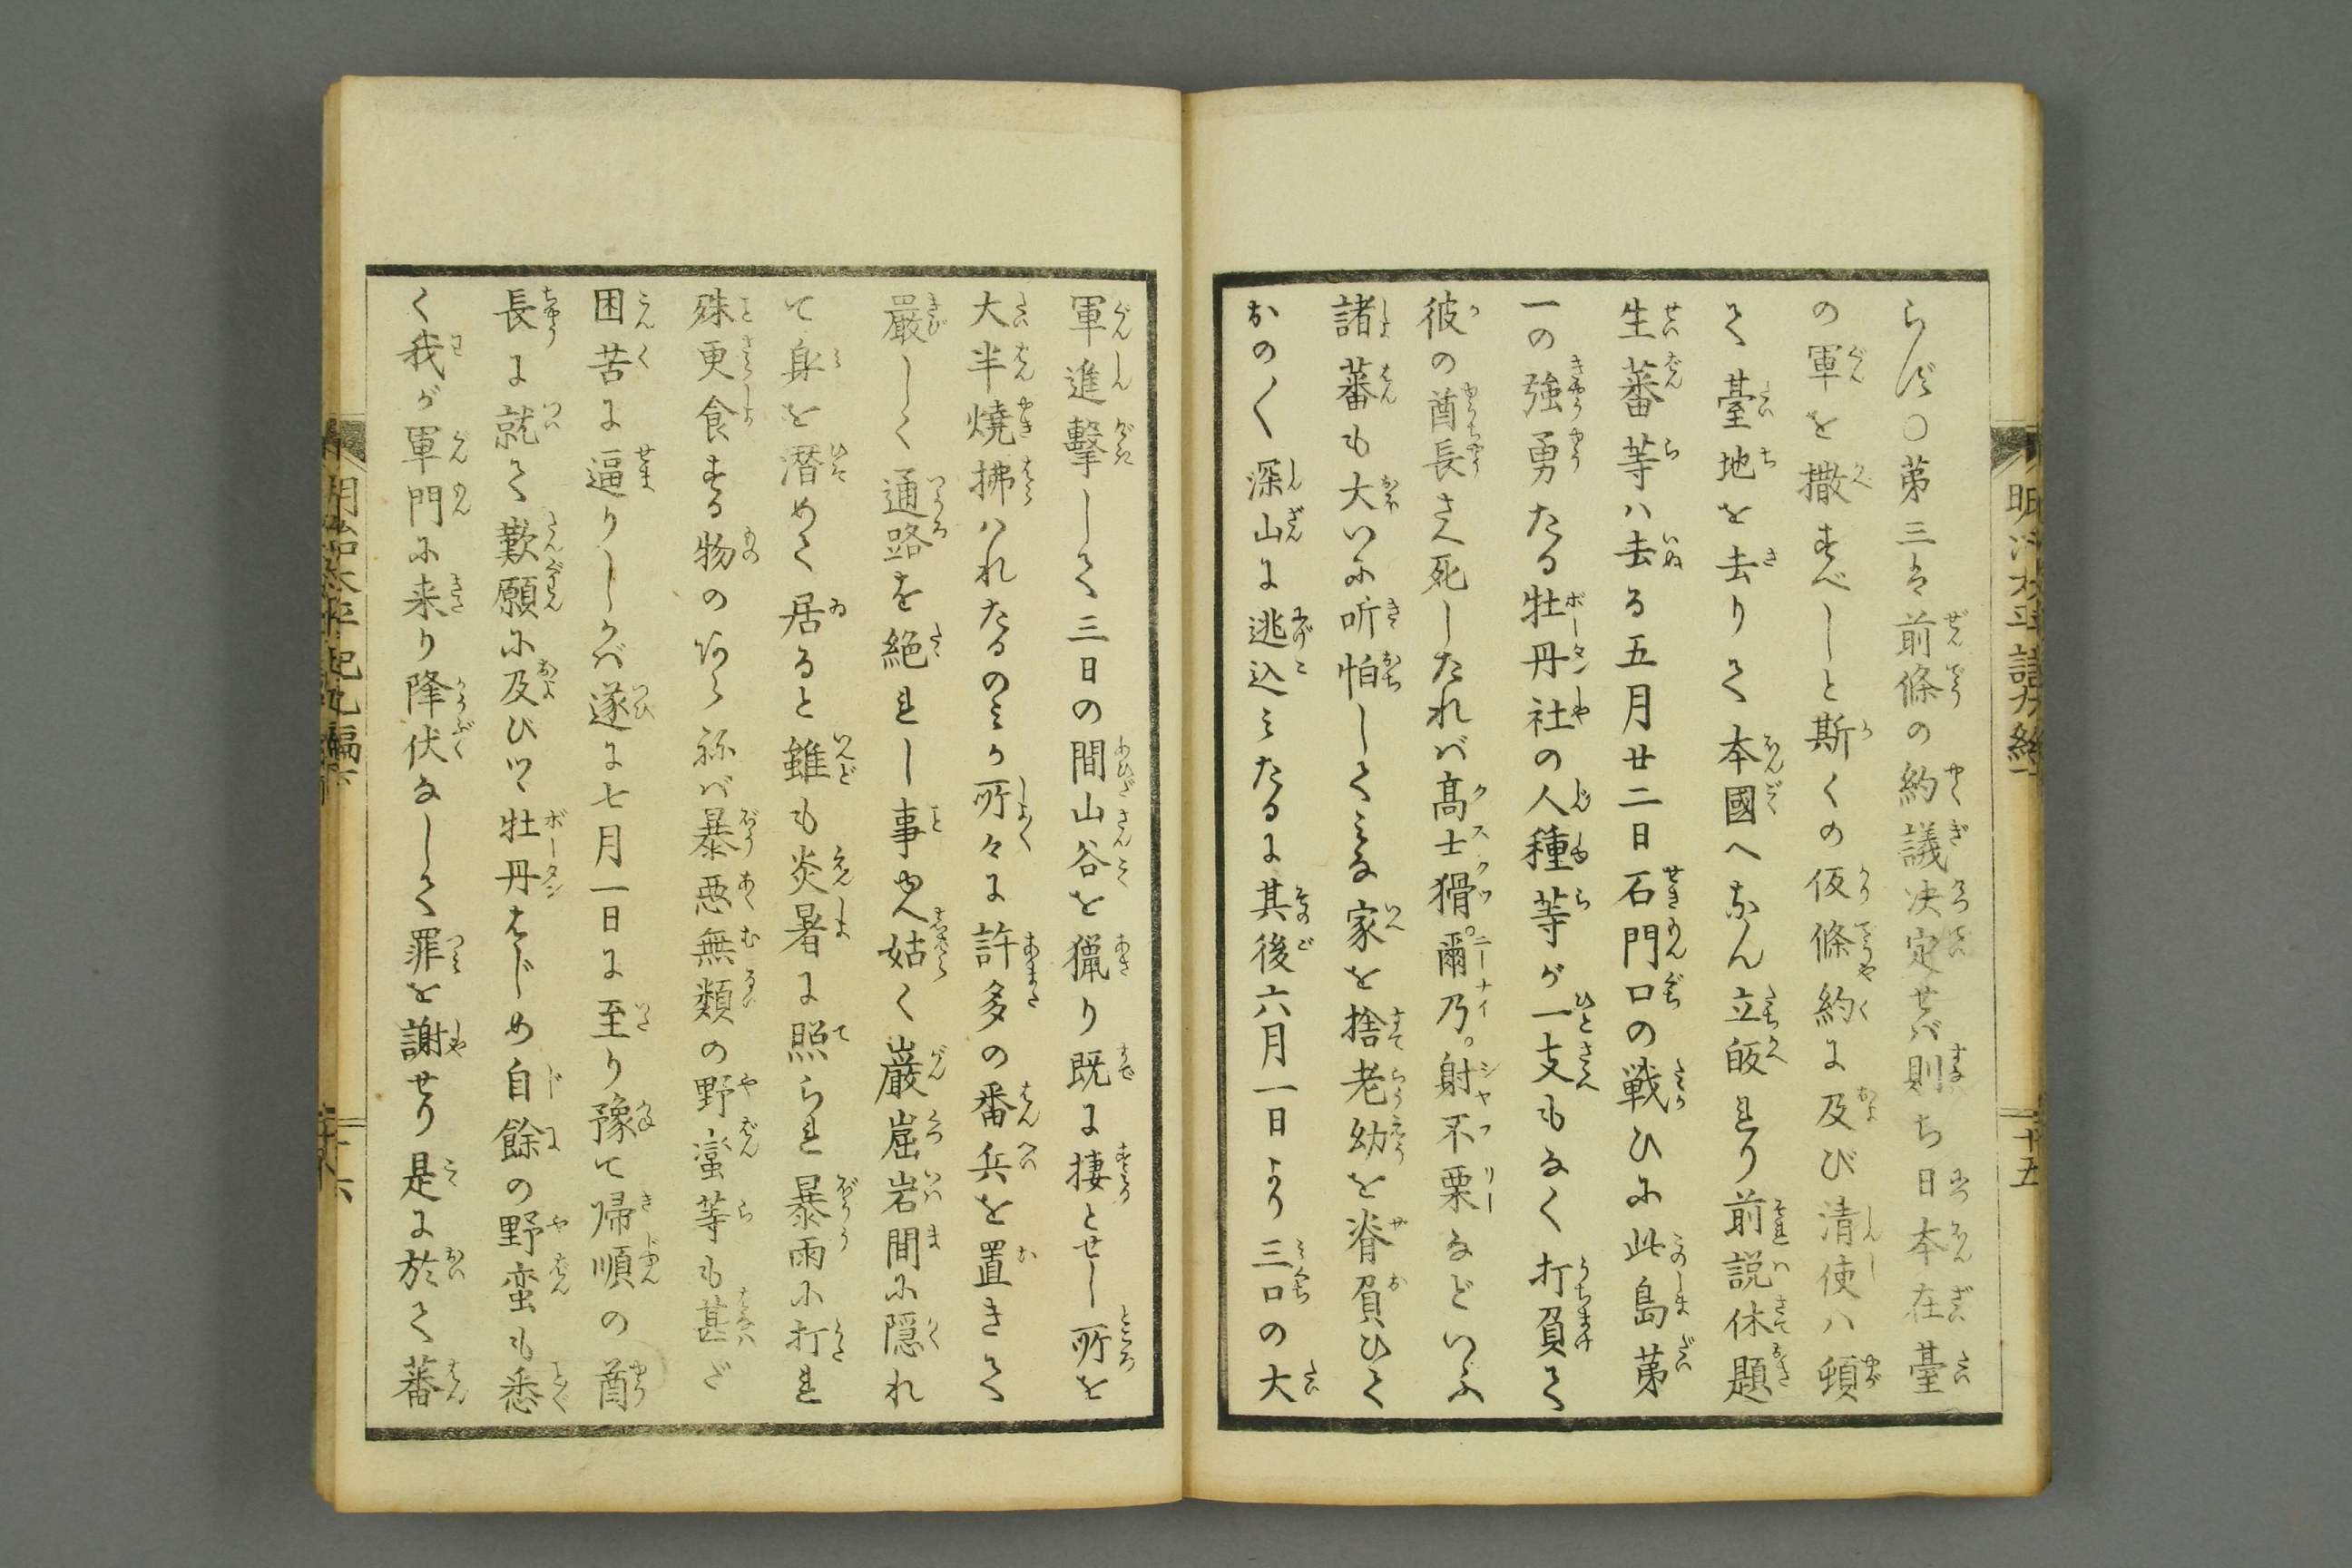 らず〇第三は前條の約議決定せバ則ち日本在臺
の軍を撒すべしと斯くの仮條約に及び清使ハ頓
て臺地を去りて本國へなん立皈れり前説休題
生蕃等ハ去る五月廿二日石門口の戦ひに此島第
一の強勇たる牡丹社の人種等が一支もなく打負て
彼の酋長さへ死したれバ髙士猾。爾乃。射不栗などいふ
諸蕃も大いに听怕してみな家を捨老幼を脊負ひて
おの〱深山に逃込ミたるに其後六月一日より三口の大
軍進撃して三日の間山谷を獵り既に棲とせし所を
大半燒拂ハれたるのミか所々に許多の番兵を置きて
嚴しく通路を絶れし事ゆへ姑く巖崫岩間に隠れ
て身を潜めて居ると雖も炎暑に照られ暴雨に打れ
殊更食する物のあらねバ暴悪無類の野蛮等も甚ざ
困苦に逼りしかバ遂に七月一日に至り豫て帰順の酋
長に就て歎願に及びツヽ牡丹はじめ自餘の野蛮も悉
く我が軍門に来り降伏なして罪を謝せり是に於て蕃
十五